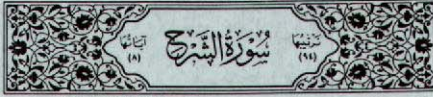 ترتيبها
(٩٤)
سُورَةُ الشَّرْحِ
آياتها
(٨)